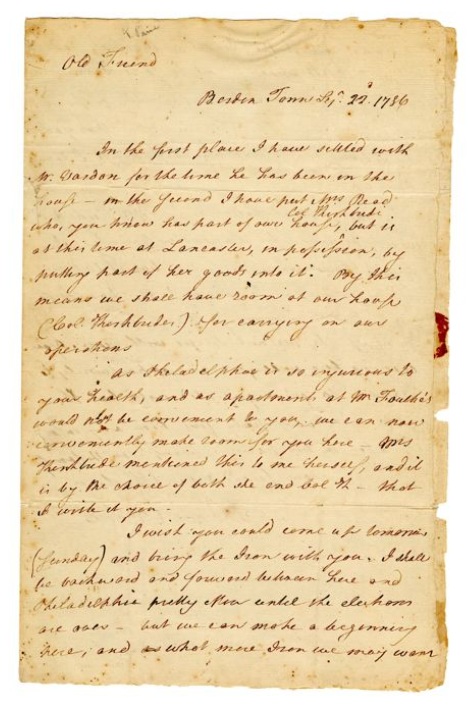 T Paine
Old Friend
Borden Town Sepr. 22d. 1786
In the first place I have settled with
Mr. Gardon for the time he has been in the
house — in the second I have put Mrs Read
Col Kirkbride
who, you know has part of our house, but is
at this time at Lancaster, in possession, by
putting part of her goods into it. By this
means we shall have room at our house
(Col. Kirkbrides) for carrying on our
operations
As Philadelphia is so injurious to
your health, and as apartments at Mr. Foulke's
would not be convenient to you, we can now
conveniently make room for you here — Mrs
Kirkbride mentioned this to me herself, and it
is by the choice of both she and Col K — that
I write it you.
I wish you could come up tomorrow
(Sunday) and bring the Iron with you. I shall
be backward and forward between here and
Philadelphia pretty often until the elections
are over — but we can make a beginning
here, and what more Iron we may want